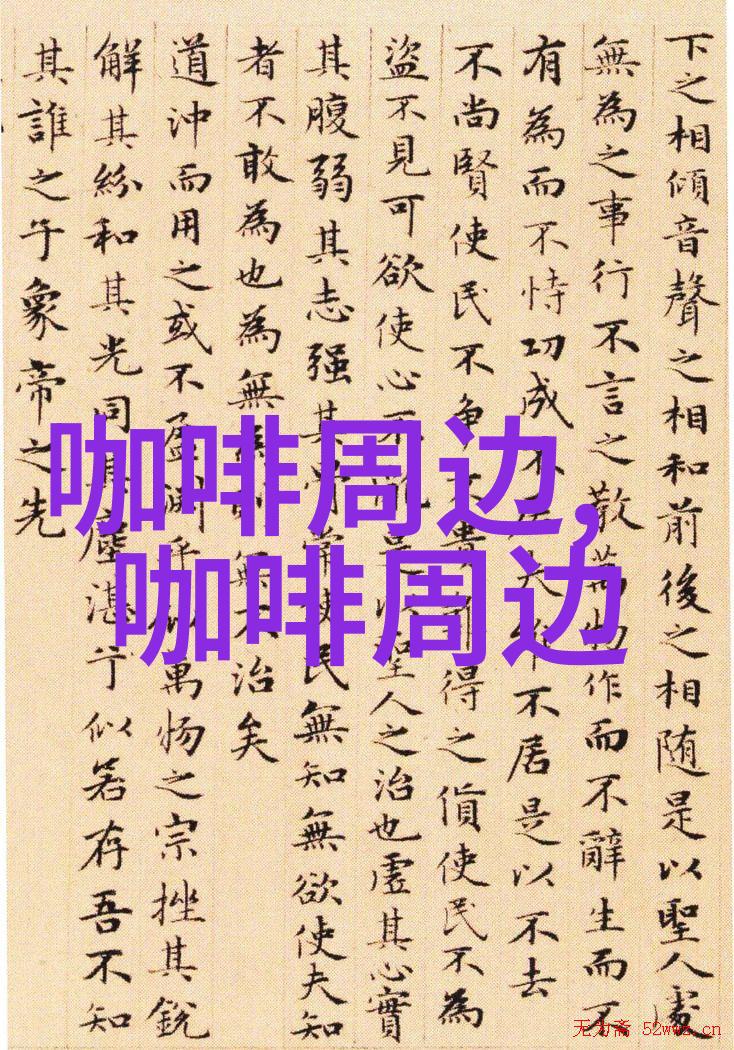 下之相傾音聲之相和前後之相随是以聖人處
無為之事行不言之教萬物作而不辭生而不
有為而不恃功成不夫不居是以不去
不尚賢使民不争貴得之貨使民不為
盜不見可欲使心不是聖人之治也虛其心實
其腹弱其志强其骨常使民無知無欲使夫知
者不敢為也為無無不治矣
道沖而用之或不盈淵乎萬物之宗挫其銳
解其紛和其光同其塵湛兮似若存吾不知
其誰之子象帝之先
咖啡周边,
咖啡周边
无为斋 52wwz.cn